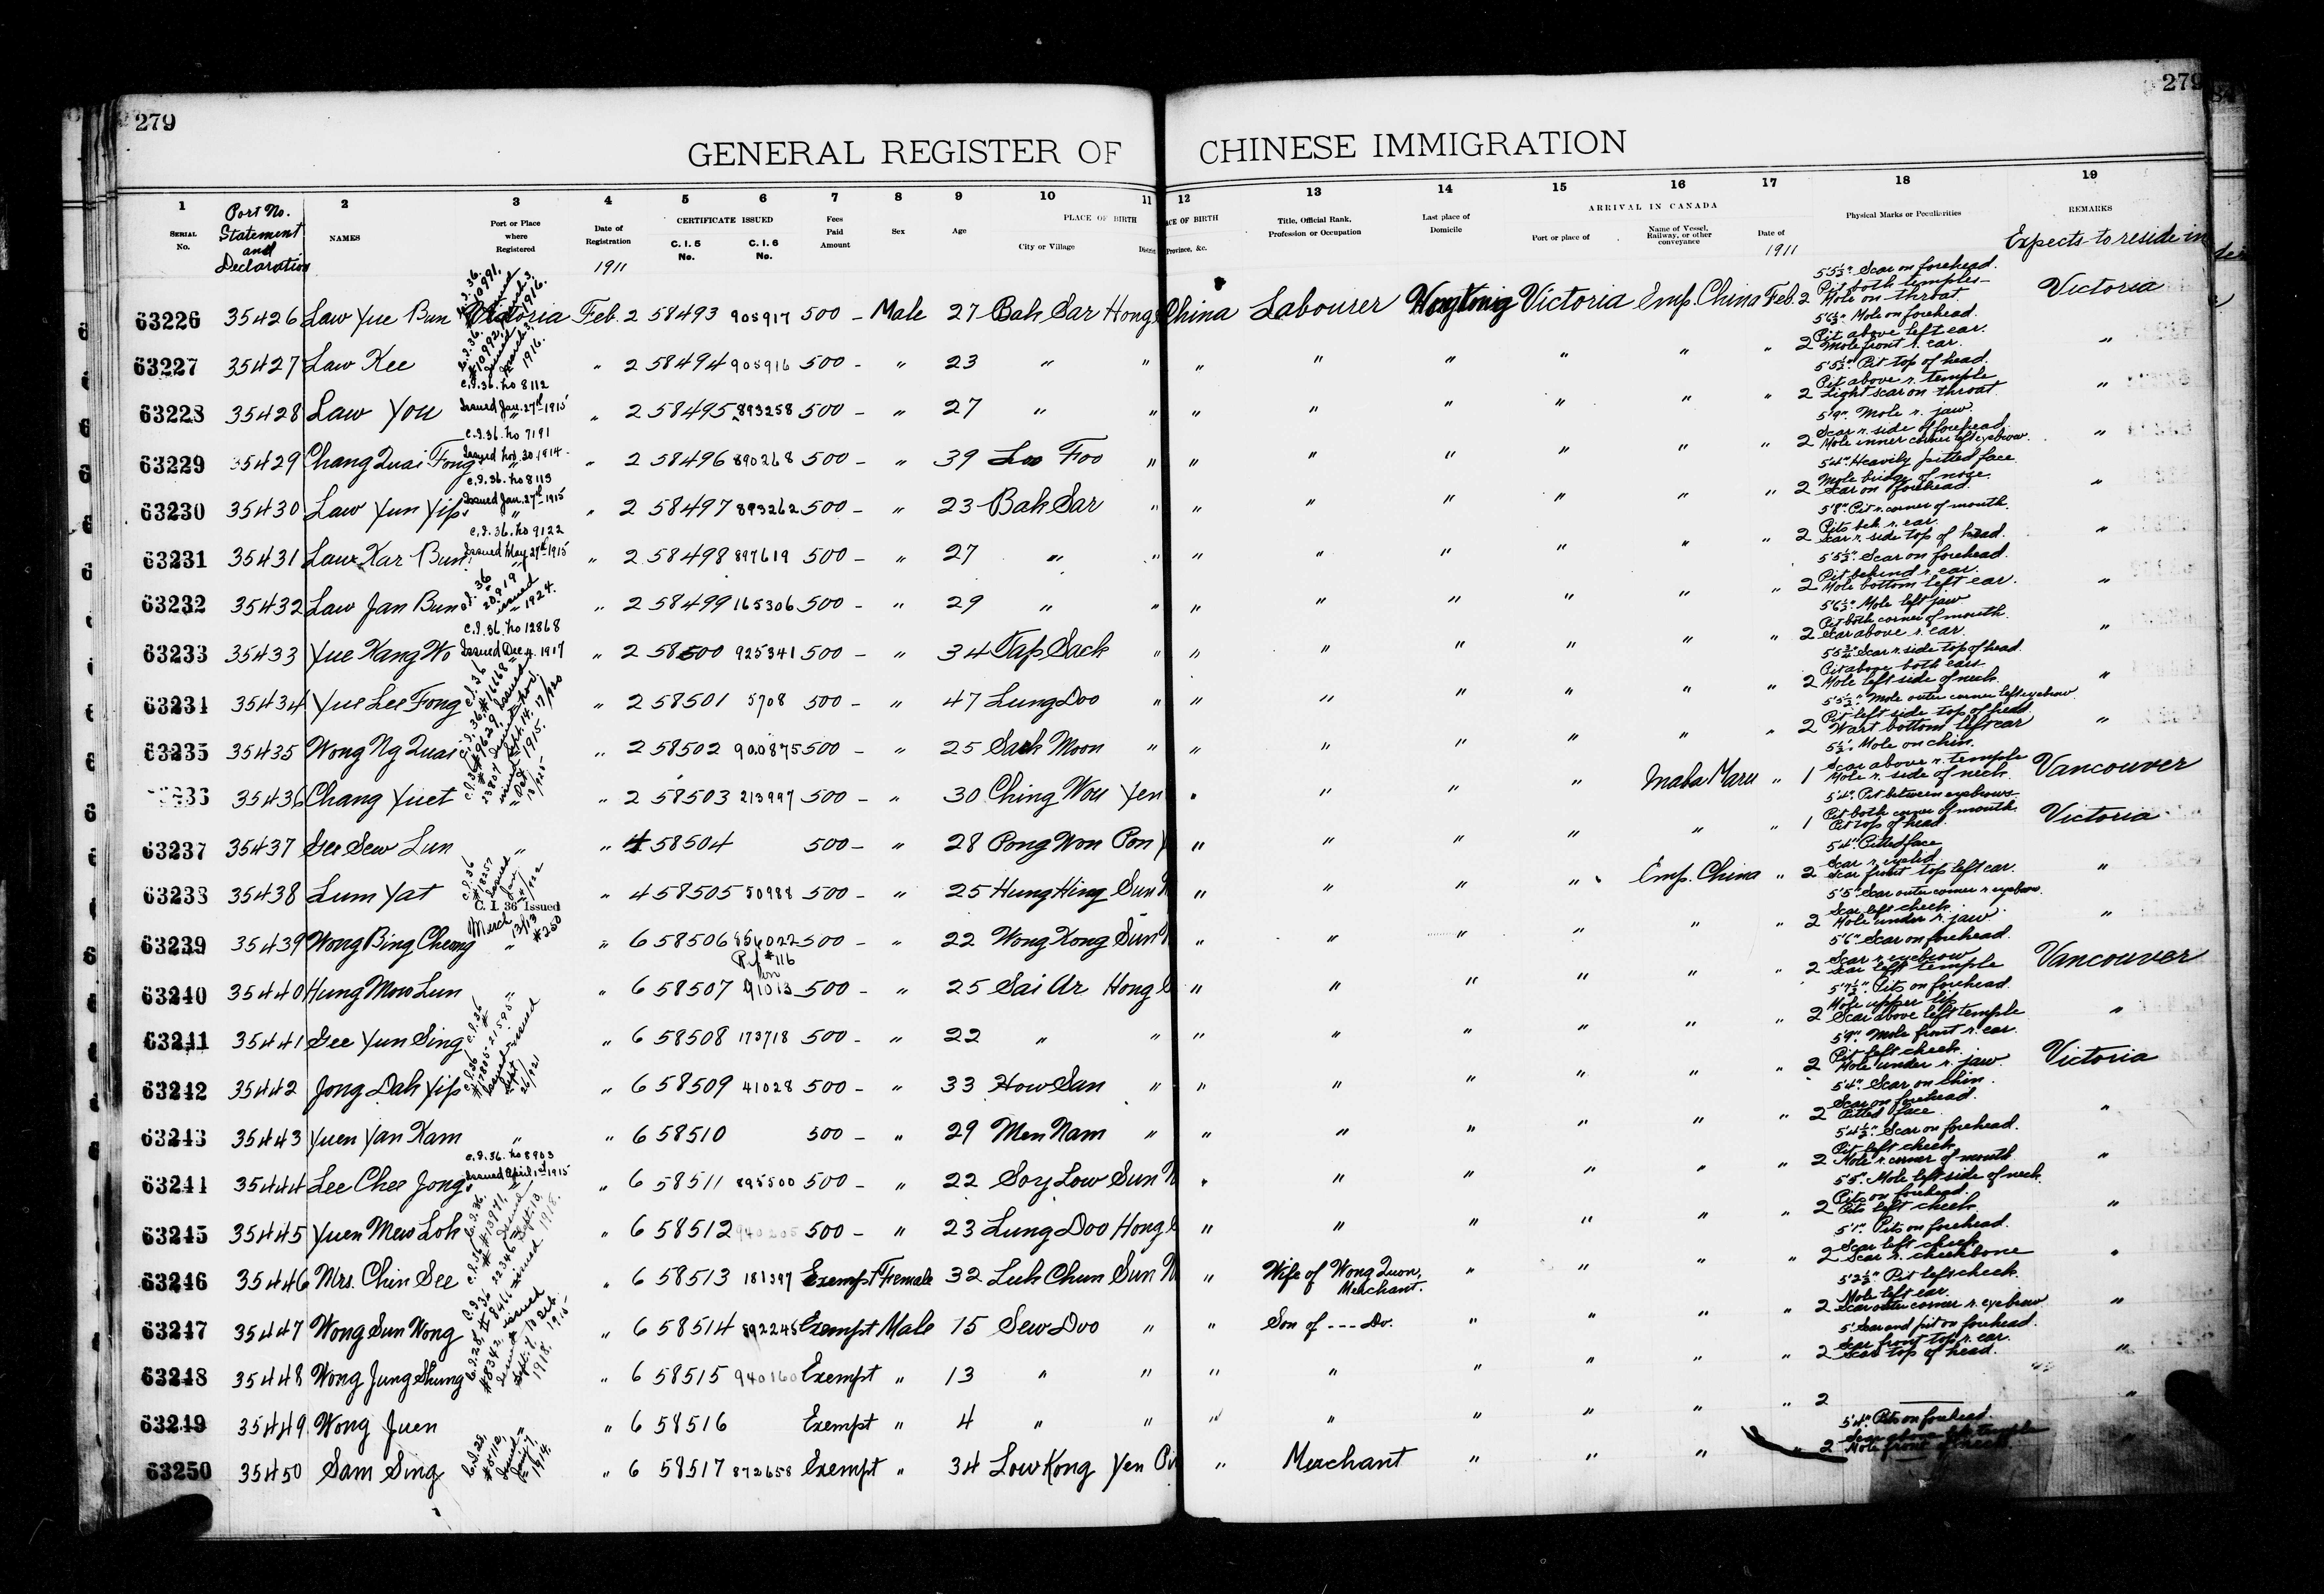 279
279
GENERAL REGISTER OF CHINESE IMMIGRATION
1 2 3 4 5 6 7 8 9 10 11 12 13 14 15 16 17 18 19
SERIAL No. Port No. Statement and Declaration NAMES Port or Place where Registered Date of Registration CERTIFICATE ISSUED C. I. 5 No. C. I. 6 No. Fees Paid Amount Sex Age PLACE OF BIRTH City or Village Province, &c. Title, Official Rank, Profession or Occupation Last place of Domicile ARRIVAL IN CANADA Port or place of Name of Vessel, Railway, or other conveyance Date of Physical Marks or Peculiarities REMARKS
1911 1911 Expects to reside in
63226 35426 Law Yue Bun Victoria Feb. 2 58493 905917 500 - Male 27 Bak Sar Hong China Labourer Victoria Emp. China Feb. 2 5'5½" Scar on forehead. Pit both temples Mole on throat. Victoria
63227 35427 Law Kee " 2 58494 905916 500 - " 23 " " " " " " " " 2 5'6½" Mole on forehead. Pit above left ear. Mole front r. ear. "
63228 35428 Law You C.I.36. No 8112 Issued Jan. 27th 1915 " 2 58495 893258 500 - " 27 " " " " " " " " 2 5'5½" Pit top of head. Pit above r. temple Light scar on throat "
63229 35429 Chang Quai Fong C.I.36. No 7191 Issued Nov. 30. 1914. " 2 58496 890268 500 - " 39 Loo Foo " " " " " " " 2 5'9". Mole r. jaw. Scar r. side of forehead. Mole inner corner left eyebrow. "
63230 35430 Law Yun Yip C.I.36. No 8113 Issued Jan. 27th 1915 " 2 58497 893262 500 - " 23 Bak Sar " " " " " " " 2 5'4" Heavily pitted face Mole bridge of nose. Scar on forehead. "
63231 35431 Law Kar Bun C.I.36. No 9122 Issued May 27th 1915 " 2 58498 897619 500 - " 27 " " " " " " " " 2 5'8" Pit r. corner of mouth. Pits beh. r. ear. Scar r. side top of head. "
63232 35432 Law Jan Bun " 2 58499 165306 500 - " 29 " " " " " " " " 2 5'5½" Scar on forehead. Pit behind r. ear. Mole bottom left ear. "
63233 35433 Yue Kang Wo C.I.36. No 12868 Issued Dec 4. 1917 " 2 58500 925341 500 - " 34 Tap Sack " " " " " " " 2 5'6½" Mole left jaw Pit both corner of mouth. Scar above r. ear. "
63234 35434 Yue Lee Fong " 2 58501 5708 500 - " 47 Lung Doo " " " " " " " 2 5'5¾" Scar r. side top of head. Pit above both ears Mole left side of neck. "
63235 35435 Wong Ng Quai " 2 58502 900875 500 - " 25 Sack Moon " " " " " " " 2 5'5½" Mole outer corner left eyebrow Pit left side top of head. Wart bottom left ear "
35436 Chang Yuet " 2 58503 213997 500 - " 30 Ching Wou Yen " " " " Inaba Maru " 1 Mole on chin. Scar above r. temple Mole r. side of neck. Vancouver
63237 35437 Gee Sew Lun " " 4 58504 500 - " 28 Pong Won Pon " " " " " " 1 5'4" Pit between eyebrows Pit both corner of mouth. Pit top of head. Victoria
63238 35438 Lum Yat " 4 58505 50988 500 - " 25 Hung Hing Sun " " " " Emp. China " 2 5'4" Pitted face Scar r. eyelid Scar front top left ear. "
63239 35439 Wong Bing Cheong C. I. 36 Issued March 13/13 #250 " " 6 58506 856022 500 - " 22 Wong Kong Sun " " " " " " 2 5'5" Scar outer corner r. eyebrow. Scar left cheek. Mole under r. jaw. "
63240 35440 Hung Mow Lun " " 6 58507 91013 500 - " 25 Sai Ar Hong " " " " " " 2 5'6" Scar on forehead. Scar r. eyebrow Scar left temple Vancouver
63241 35441 Gee Yun Sing " 6 58508 173718 500 - " 22 " " " " " " " " 2 5'7½" Pits on forehead. Mole upper lip Scar above left temple "
63242 35442 Jong Dak Yip " 6 58509 41028 500 - " 33 How San " " " " " " " 2 5'9" Mole front r. ear. Pit left cheek. Mole under r. jaw. Victoria
63243 35443 Yuen Yan Kam " " 6 58510 500 - " 29 Men Nam " " " " " " " 2 5'4" Scar on Shin. Scar on forehead. Pitted face. "
63244 35444 Lee Chee Jong C.I.36. No 8903 Issued April 1st 1915 " 6 58511 895500 500 - " 22 Soy Low Sun " " " " " " 2 5'4½" Scar on forehead. Pit left cheek. Mole r. corner of mouth "
63245 35445 Yuen Mew Loh " 6 58512 500 - " 23 Lung Doo Hong " " " " " " 2 5'5" Mole left side of neck. Pits on forehead. Pits left cheek. "
63246 35446 Mrs. Chin See " 6 58513 181397 Exempt Female 32 Luk Chun Sun " Wife of Wong Quon, Merchant. " " " " 2 5'1" Pits on forehead. Scar left cheek Scar r. cheekbone "
63247 35447 Wong Sun Wong " 6 58514 892245 Exempt Male 15 Sew Doo " " Son of --- Do. " " " " 2 5'2½" Pit left cheek. Mole left ear. Scar outer corner r. eyebrow "
63248 35448 Wong Jung Shung " 6 58515 940160 Exempt " 13 " " " " " " " " 2 5' Scar and pit on forehead. Scar front top r. ear. Scar top of head. "
63249 35449 Wong Juen " 6 58516 Exempt " 4 " " " " " " " " 2 "
63250 35450 Sam Sing C.I.28, #5112, " 6 58517 872658 Exempt " 34 Low Kong Yen " Merchant " " " " 2 5'4" Pits on forehead. Scar above left temple Mole front of neck